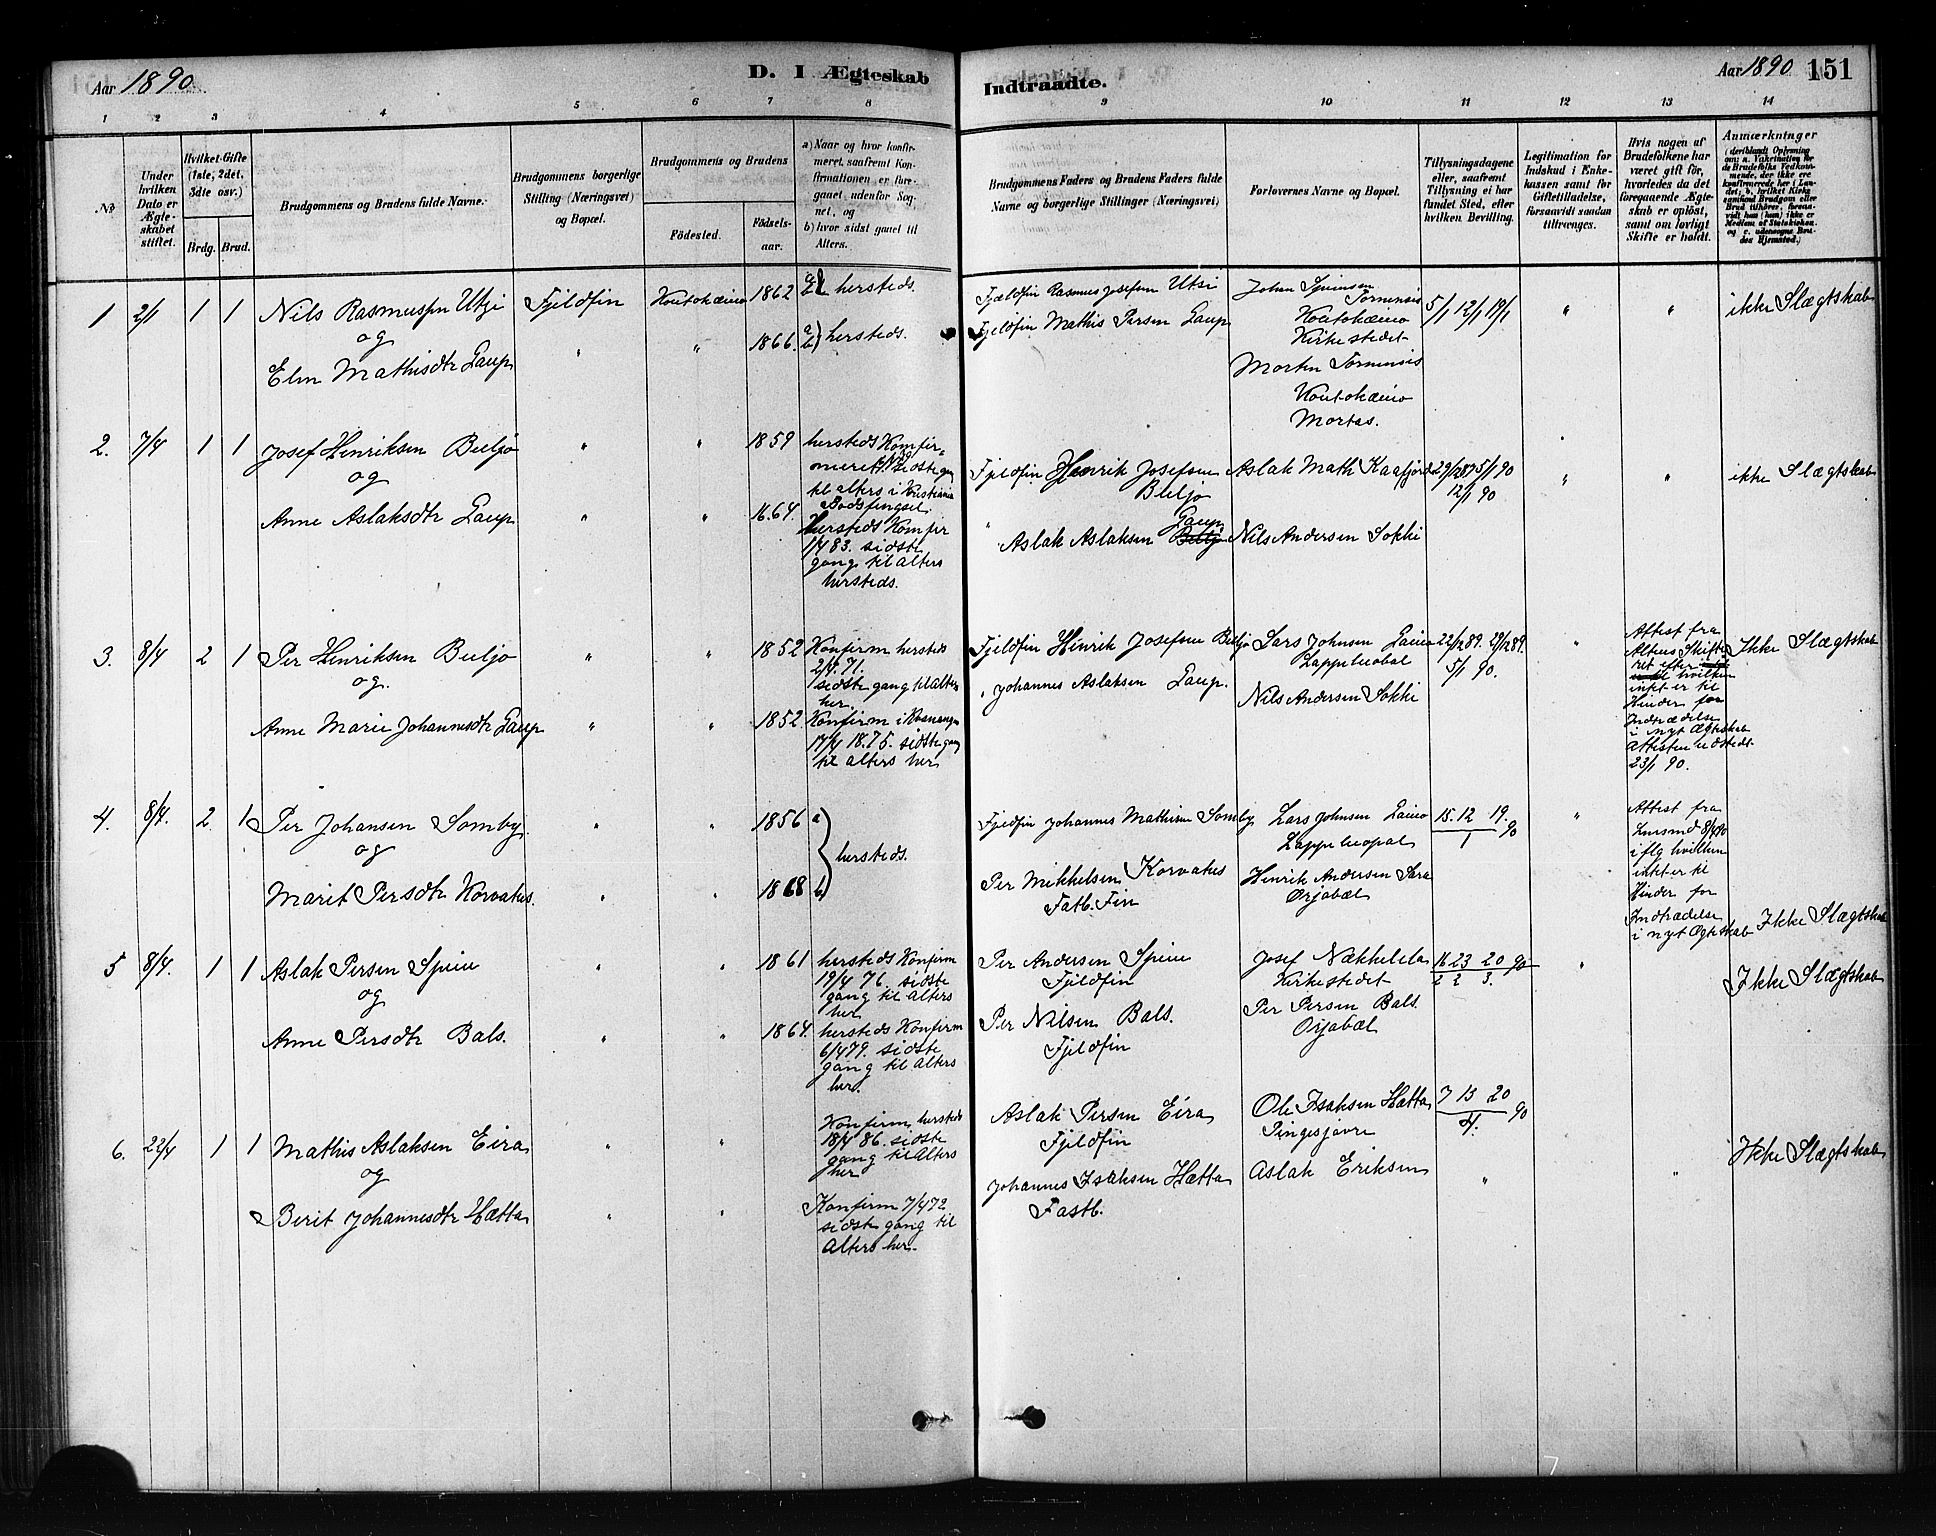 Aar 1890.
D. I Ægteskab
Indtraadte.
Aar 1890 151
1 2 3 4 5 6 7 8 9 10 11 12 13 14
No
Under hvilken Dato er Ægteskabet stiftet.
Hvilket Gifte (1ste, 2det, 3die osv.)
Brdg. Brud.
Brudgommens og Brudens fulde Navne.
Brudgommens borgerlige Stilling (Næringsvei) og Bopæl.
Brudgommens og Brudens
Födested.
Födselsaar.
a) Naar og hvor konfirmeret, saafremt Konfirmationen er foregaaet udenfor Sognet, og
b) hvor sidst gaaet til Alters.
Brudgommens Faders og Brudens Faders fulde Navne og borgerlige Stillinger (Næringsvei)
Forlovernes Navne og Bopæl.
Tillysningsdagene eller, saafremt Tillysning ei har fundet Sted, efter hvilken Bevilling.
Legitimation for Indskud i Enkekassen samt for Giftetilladelse, forsaavidt saadan tiltrænges.
Hvis nogen af Brudefolkene har været gift för, hvorledes da det foregaaende Ægteskab er oplöst, samt om lovligt Skifte er holdt.
Anmærkninger
1 2/1 1 1 Nils Rasmussen Utsi Fjeldfin Koutokæino 1862 hersteds.
og
Elen Mathisdtr Gaup " " 1866. hersteds.
Fjeldfin Rasmus Josefsen Utsi
Fjeldfin Mathis Persen Gaup
Koutokæino
Kirkestedet
Koutokæino
Mortas.
5/1 12/1 19/1 " " ikke Slægtskab
2. 7/4 1 1 Josef Henriksen Buljo " " 1859 hersteds Konfirmeret sidste gang
til alters i Kristiania
Bodsfengsel.
og
Anne Aslaksdtr Gaup " " 1864. Hersteds Konfir
1/4 83. sidste
gang til alters
hersteds.
Fjeldfin Henrik Josefsen
Buljo
" Aslak Aslaksen Gaup
Aslak Math Kaafjord
Nils Andersen Sokki
29/12 89 5/1 90
12/1 90 " " ikke Slægtskab
3. 8/4 2 1 Per Henriksen Buljo " " 1852 Konfirm hersteds
2/4 71.
sidste gang til Alters
her.
og.
Anne Marie Johannesdtr Gaup " " 1852. Konfirm i Kvænangen
17/4 1875. sidste gang
til alters her
Fjeldfin Henrik Josefsen Buljo
" Johannes Aslaksen Gaup.
Lars Johnsen Gaino
Lappeluobal
Nils Andersen Sokki
22/12 89. 29/12 89.
5/1 90. "
Attest fra
Altens Skifteret efter
hvilken
intet er til
Hinder for
Indtrædelse
i nyt Ægteskab
Attesten udstedt
23/1 90.
Ikke Slægtskab
4. 8/4. 2. 1 Per Johansen Somby. " " 1856 a
og
Marit Persdtr Korvatus. " " 1868 b
hersteds.
Fjeldfin Johannes Mathisen Somby
Per Mikkelsen Korvatus
Fastb. Fin
Lars Johnsen Gaino
Lappeluopal
Henrik Andersen Sara
Orjabæl
15. 12 19.
1 90 "
Attest fra
Lensmd 8/4 90
iflg hvilken
intet er til
Hinder for
Indtrædelse
i nyt Ægteskab
Ikke Slægtskab
5 8/4. 1 1 Aslak Persen Spein " " 1861 hersteds Konfirm
19/4 76. sidste
gang til Alters
her
og
Anne Persdtr Bals. " " 1864. hersteds Konfirm
6/4 79. sidste
gang til Alters
her.
Per Andersen Spein
Fjeldfin
Per Nilsen Bals.
Fjeldfin
Josef Nækkelela
Kirkestedet
Per Persen Bals.
Orjabæl
16 23 20 90
2 2 3. " Ikke Slægtskab
6. 22/4 1 1 Mathis Aslaksen Eira " " Konfirm hersteds
18/4 86. sidste
gang til Alters
her
og
Berit Johannesdtr Hætta " " Konfirm 7/4 72
sidste gang til
Alters her.
Aslak Persen Eira
Fjeldfin
Johannes Isaksen Hætta
Fastb.
Ole Isaksen Hætta
Pingesjavre
Aslak Eriksen
7 13 20
4. 90 " " Ikke Slægtskab